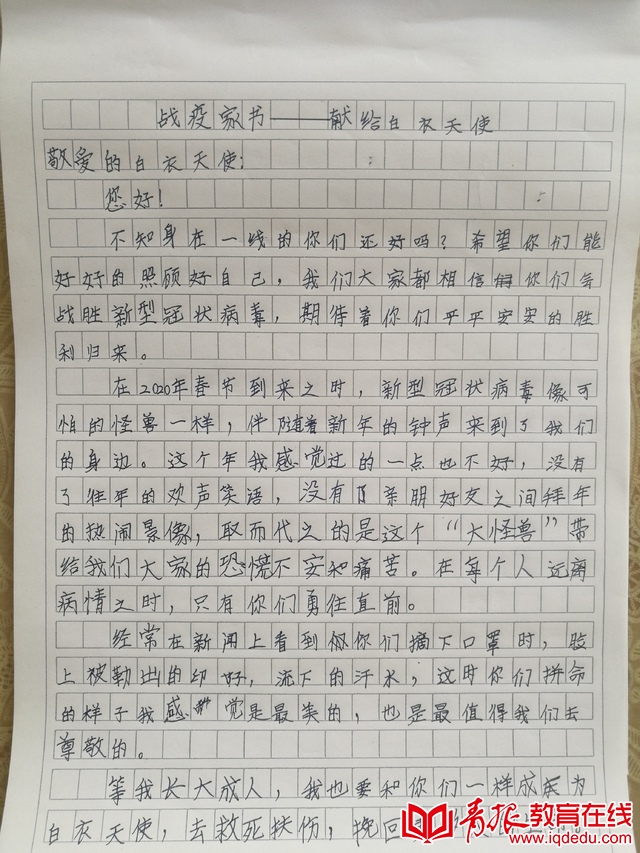 战疫家书——献给白衣天使
敬爱的白衣天使：
您好！
不知身在一线的你们还好吗？希望你们能
好好的照顾好自己，我们大家都相信你们
战胜新型冠状病毒，期待着你们平平安安的胜
利归来。
在2020年春节到来之时，新型冠状病毒像可
怕的怪兽一样，伴随着新年的钟声来到了我们
的身边。这个年我感觉过的一点也不好，没有
了往年的欢声笑语，没有了亲朋好友之间拜年
的热闹景像，取而代之的是这个“大怪兽”带
给我们大家的恐慌不安和痛苦。在每个人远离
病情之时，只有你们勇往直前。
经常在新闻上看到你们摘下口罩时，脸
上被勒出的印好，流下的汗水，这时你们拼命
的样子我感觉是最美的，也是最值得我们去
尊敬的。
等我长大成人，我也要和你们一样成为
白衣天使，去救死扶伤，挽回
青报教育在线
www.iqdedu.com